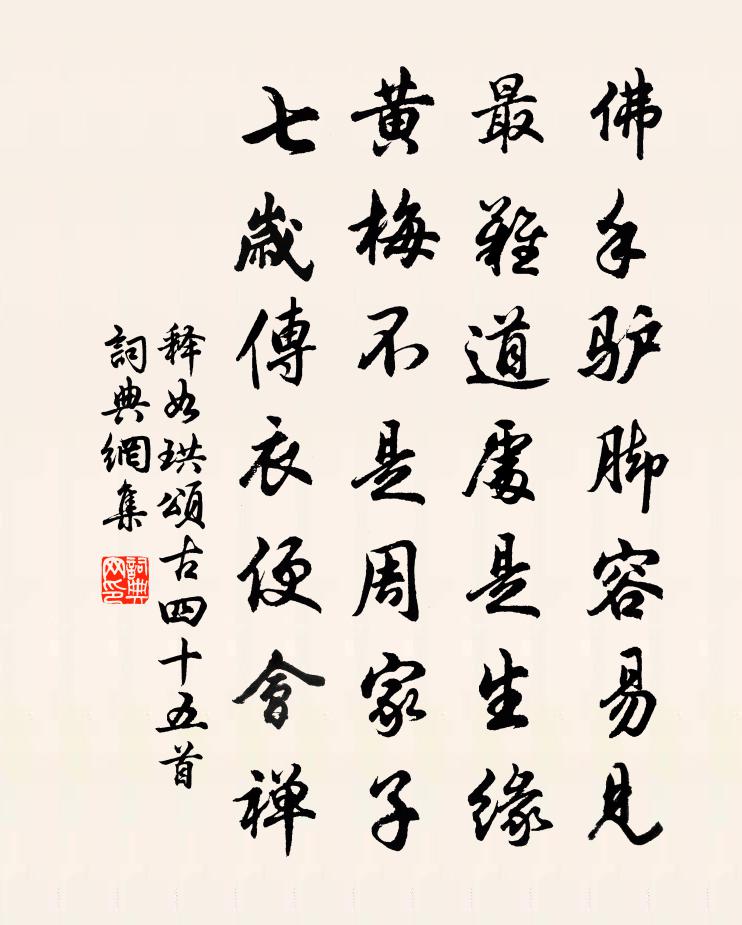 佛手驴脚容易見
最難道處是生緣
黄梅不是周家子
七歲傳衣便會禅
释如珙頌古四十五首
詞典網集
詞典
网印